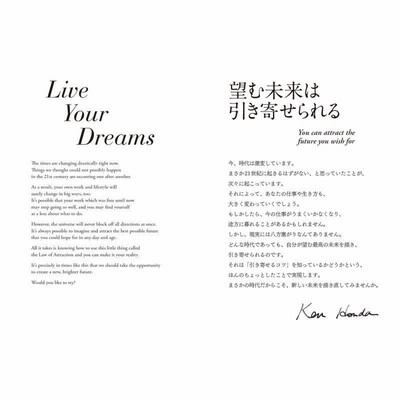 Live
Your
Dreams
The times are changing drastically right now.
Things we thought could not possibly happen
in the 21st century are occurring one after another.
As a result, your own work and lifestyle will
surely change in big ways, too.
It's possible that your work which was fine until now
may stop going so well, and you may find yourself
at a loss about what to do.
However, the universe will never block off all directions at once.
It's always possible to imagine and attract the best possible future
that you could hope for in any day and age.
All it takes is knowing how to use this little thing called
the Law of Attraction and you can make it your reality.
It's precisely in times like this that we should take the opportunity
to create a new, brighter future.
Would you like to try?
望む未来は
引き寄せられる
You can attract the
future you wish for
今、時代は激変しています。
まさか21世紀に起きるはずがない、と思っていたことが、
次々に起こっています。
それによって、あなたの仕事や生き方も、
大きく変わっていくでしょう。
もしかしたら、今の仕事がうまくいかなくなり、
途方に暮れることがあるかもしれません。
しかし、現実には八方塞がりなんてありません。
どんな時代であっても、自分が望む最高の未来を描き、
引き寄せられるのです。
それは「引き寄せるコツ」を知っているかどうかという、
ほんのちょっとしたことで実現します。
まさかの時代だからこそ、新しい未来を描き直してみませんか。
Ken Honda